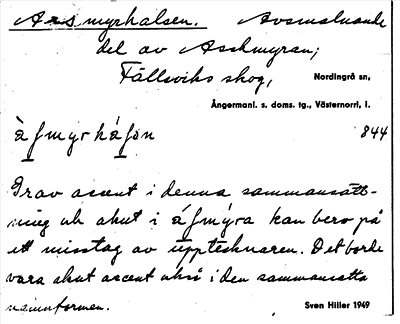 Assmyrhalsen. Avsmalnande
del av Aschmyran;
Fällsviks skog,
Nordingrå sn,
Ångermanl. s. doms. tg., Västernorrl. l.
àfmyrháfn 844
Grav accent i denna sammansätt-
ning och akut i áfmýra kan bero på
ett misstag av upptecknaren. Det borde
vara akut accent också i den sammansatta
namnformen.
Sven Hiller 1949